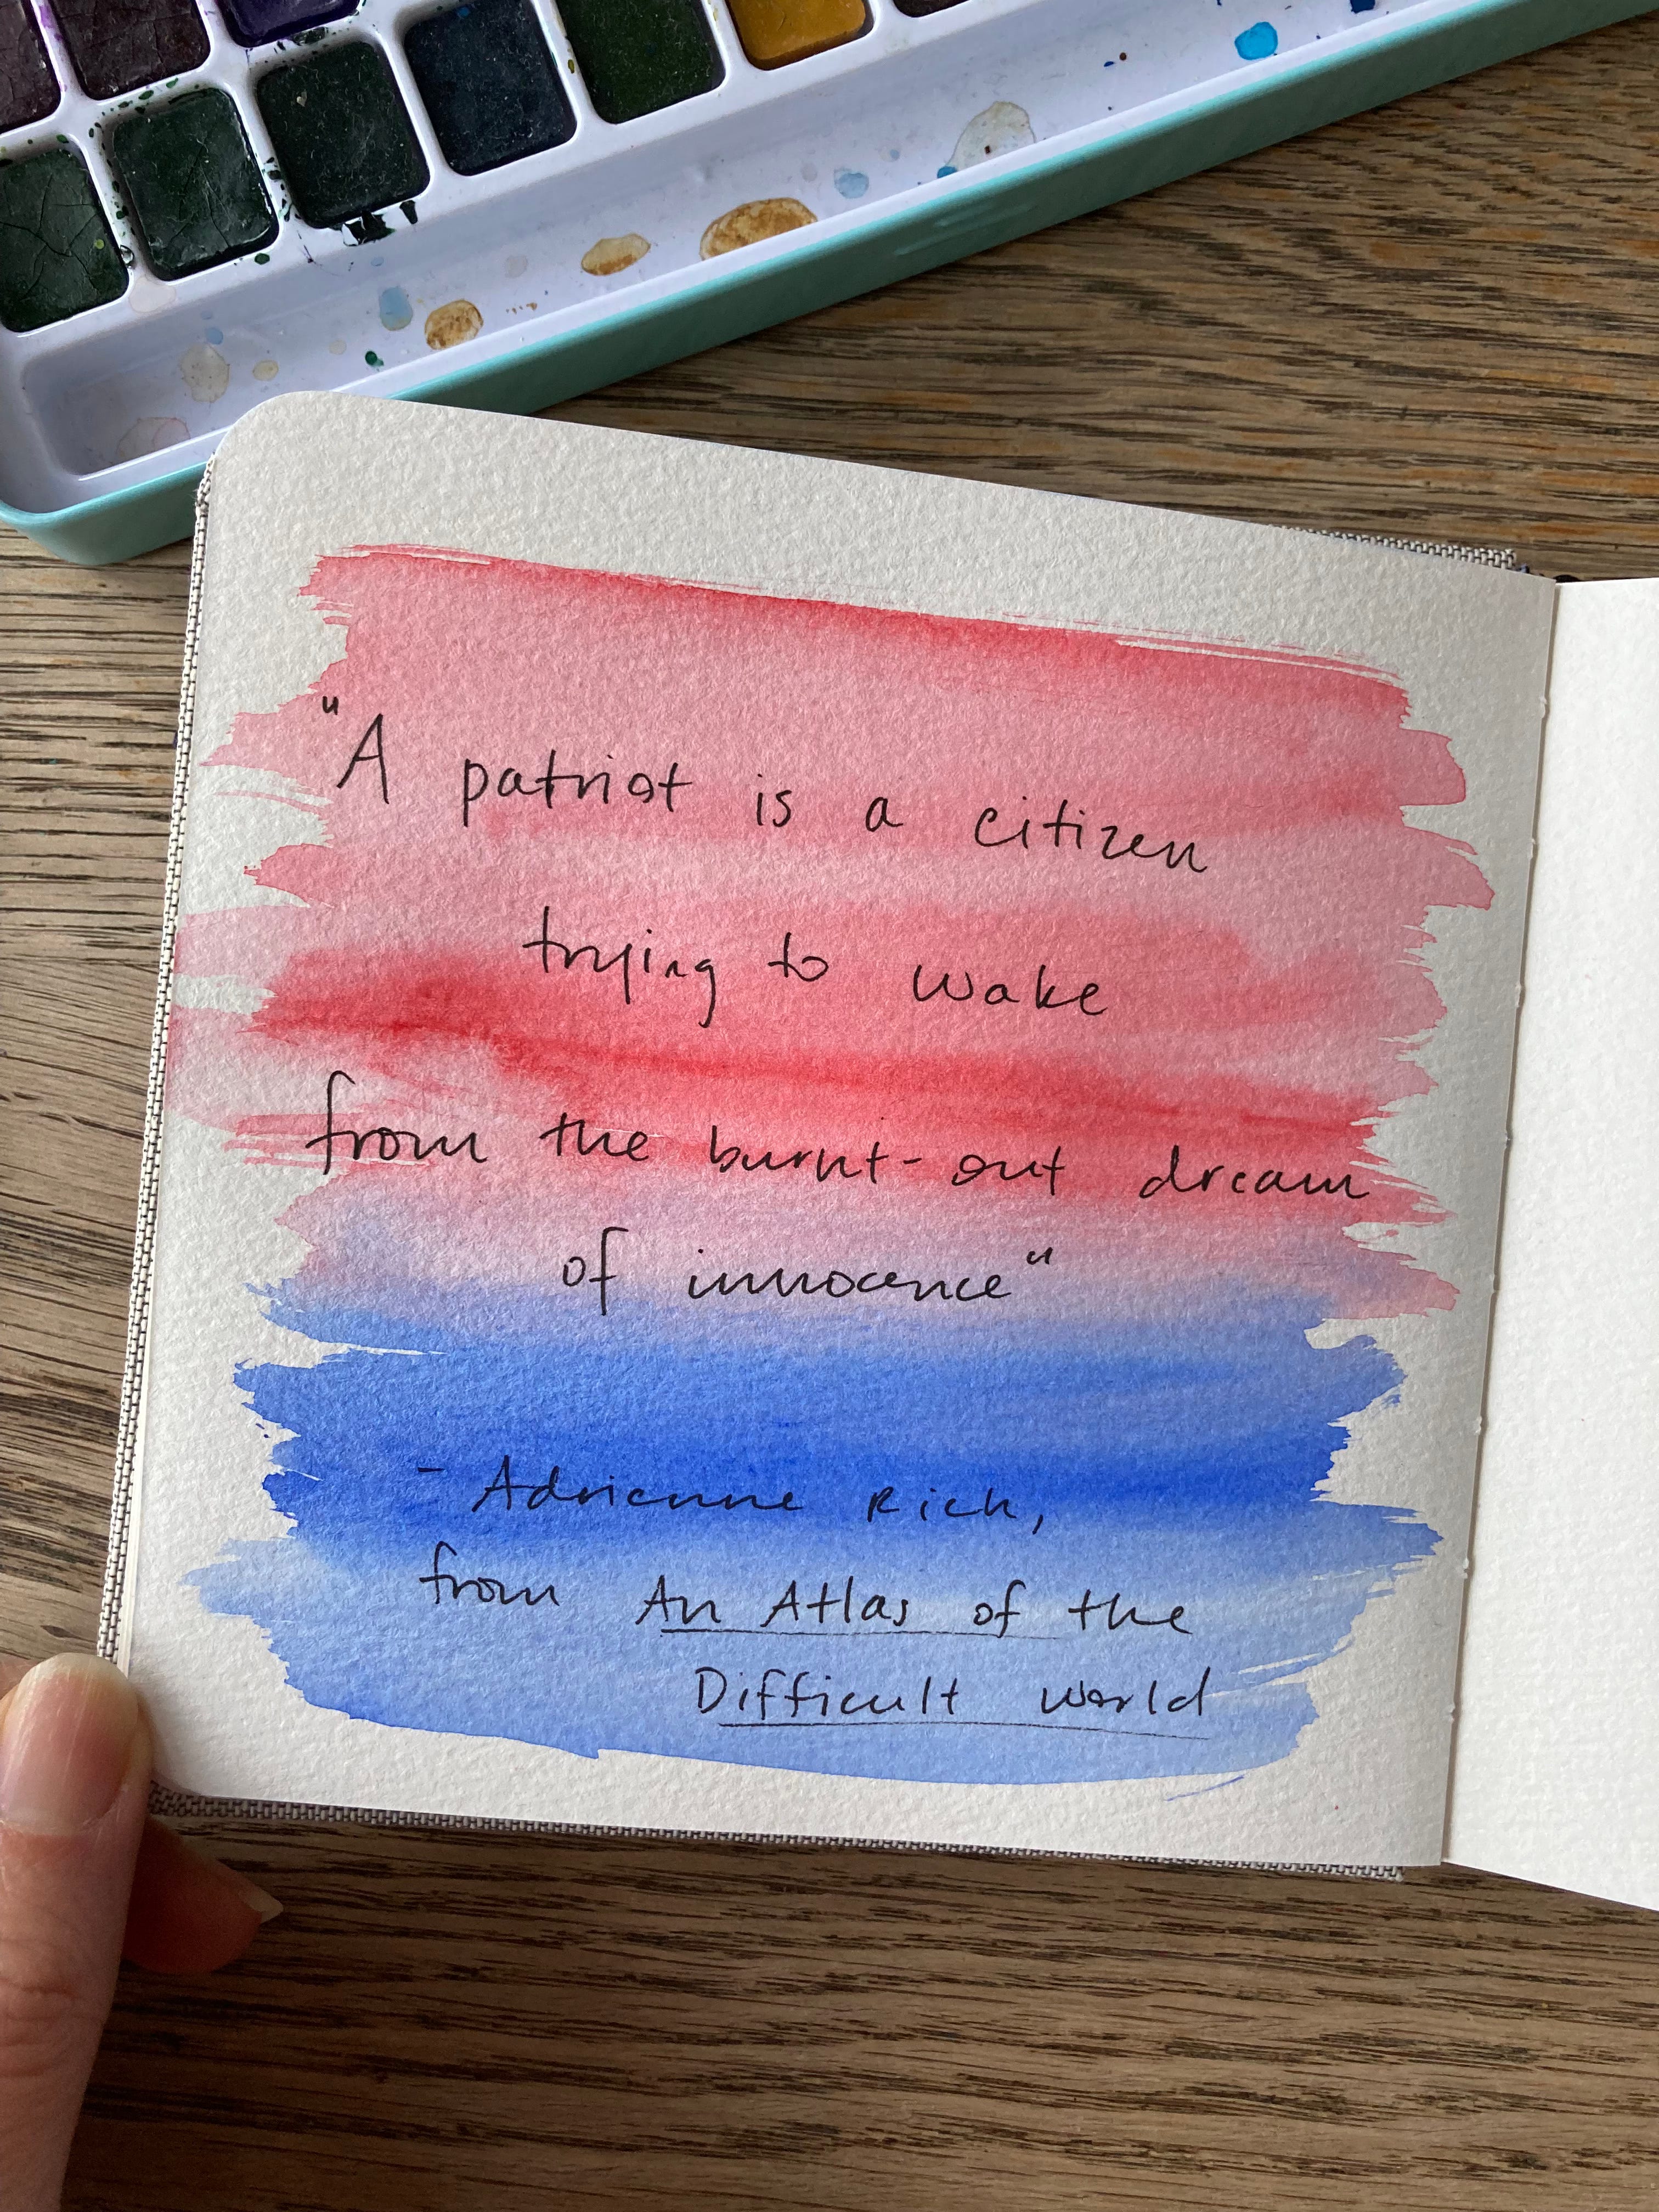 "A patriot is a citizen
trying to wake
from the burnt-out dream
of innocence"
- Adrienne Rich,
from An Atlas of the
Difficult World